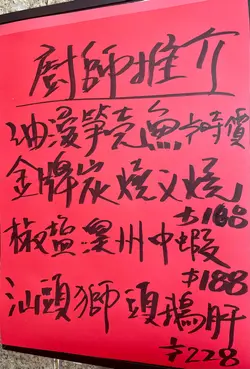 廚師推介
油浸筍壳魚 $時價
金牌炭燒叉燒
$168
椒盐澳州中蝦
$188
汕頭獅頭鵝肝
$228